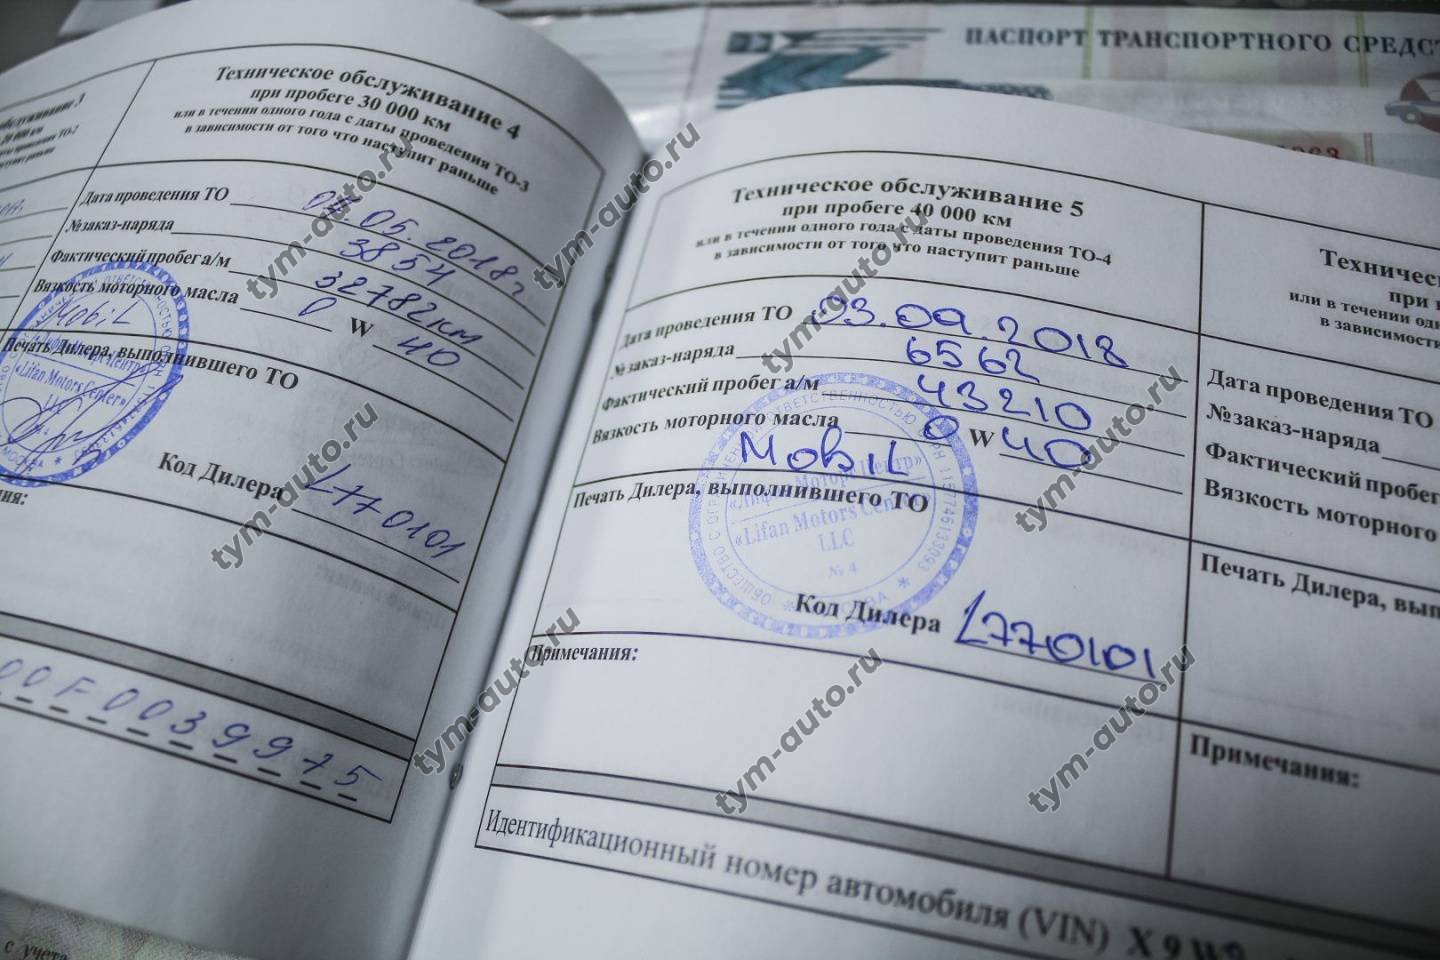 ПАСПОРТ ТРАНСПОРТНОГО СРЕДСТ
Техническое обслуживание 4
при пробеге 30 000 км
или в течении одного года с даты проведения ТО-3
в зависимости от того что наступит раньше
Дата проведения ТО 05.2018г
№заказ-наряда 3854
Фактический пробег а/м 32782км
Вязкость моторного масла 0 W 40
Mobil
Печать Дилера, выполнившего ТО
«Lifan Motors Center»
Код Дилера L770101
00F0039975
Техническое обслуживание 5
при пробеге 40 000 км
или в течении одного года с даты проведения ТО-4
в зависимости от того что наступит раньше
Дата проведения ТО 03.09.2018
№заказ-наряда 6562
Фактический пробег а/м 43210
Вязкость моторного масла 0 W 40
Mobil
Печать Дилера, выполнившего ТО
ОБЩЕСТВО С ОГРАНИЧЕННОЙ ОТВЕТСТВЕННОСТЬЮ ОГРН 1157746133093
«Лифан Моторс Центр»
«Lifan Motors Center»
LLC
№ 4
МОСКВА
Код Дилера L770101
Примечания:
Идентификационный номер автомобиля (VIN) X 9 W
Техническ
при п
или в течении одн
в зависимости
Дата проведения ТО
№заказ-наряда
Фактический пробег
Вязкость моторного
Печать Дилера, вып
Примечания:
с учета
tym-auto.ru
tym-auto.ru
tym-auto.ru
tym-auto.ru
tym-auto.ru
tym-auto.ru
tym-auto.ru
tym-auto.ru
tym-auto.ru